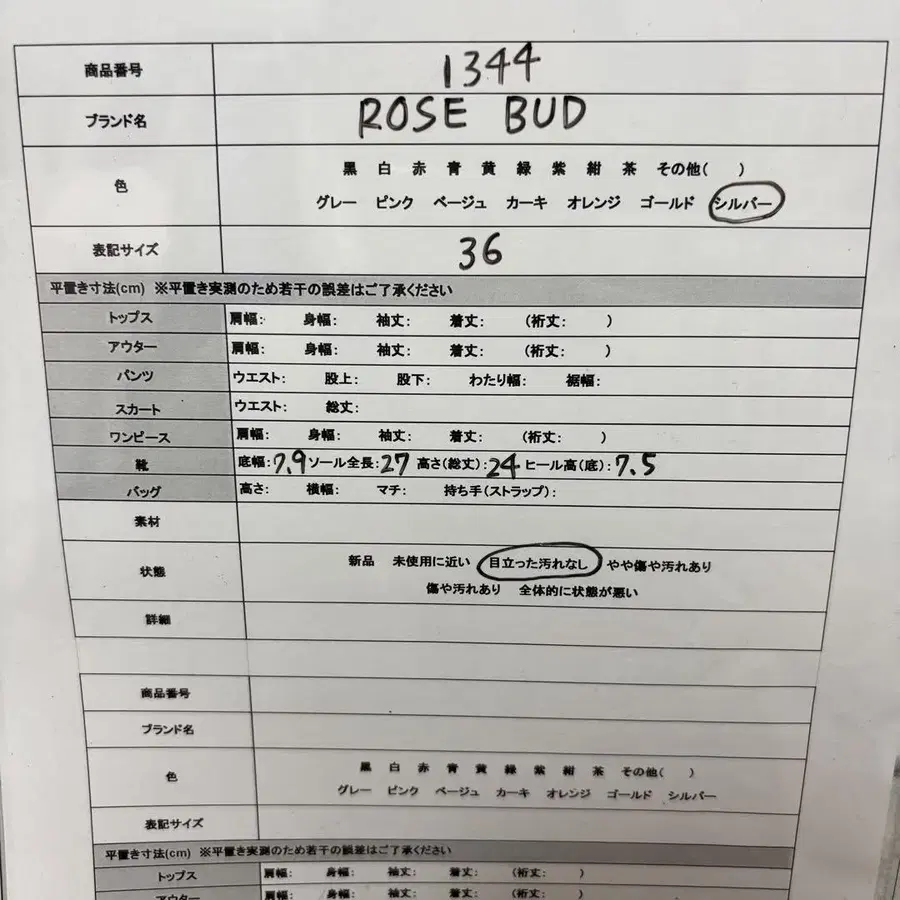 商品番号 1344
ブランド名 ROSE BUD
色 黒 白 赤 青 黄 緑 紫 紺 茶 その他( )
グレー ピンク ベージュ カーキ オレンジ ゴールド シルバー
表記サイズ 36
平置き寸法(cm) ※平置き実測のため若干の誤差はご了承ください
トップス 肩幅: 身幅: 袖丈: 着丈: (裄丈: )
アウター 肩幅: 身幅: 袖丈: 着丈: (裄丈: )
パンツ ウエスト: 股上: 股下: わたり幅: 裾幅:
スカート ウエスト: 総丈:
ワンピース 肩幅: 身幅: 袖丈: 着丈: (裄丈: )
靴 底幅: 7.9 ソール全長: 27 高さ(総丈): 24 ヒール高(底): 7.5
バッグ 高さ: 横幅: マチ: 持ち手(ストラップ):
素材
状態 新品 未使用に近い 目立った汚れなし やや傷や汚れあり
傷や汚れあり 全体的に状態が悪い
詳細
商品番号
ブランド名
色 黒 白 赤 青 黄 緑 紫 紺 茶 その他( )
グレー ピンク ベージュ カーキ オレンジ ゴールド シルバー
表記サイズ
平置き寸法(cm) ※平置き実測のため若干の誤差はご了承ください
トップス 肩幅: 身幅: 袖丈: 着丈: (裄丈: )
アウター 肩幅: 身幅: 袖丈: 着丈: (裄丈: )